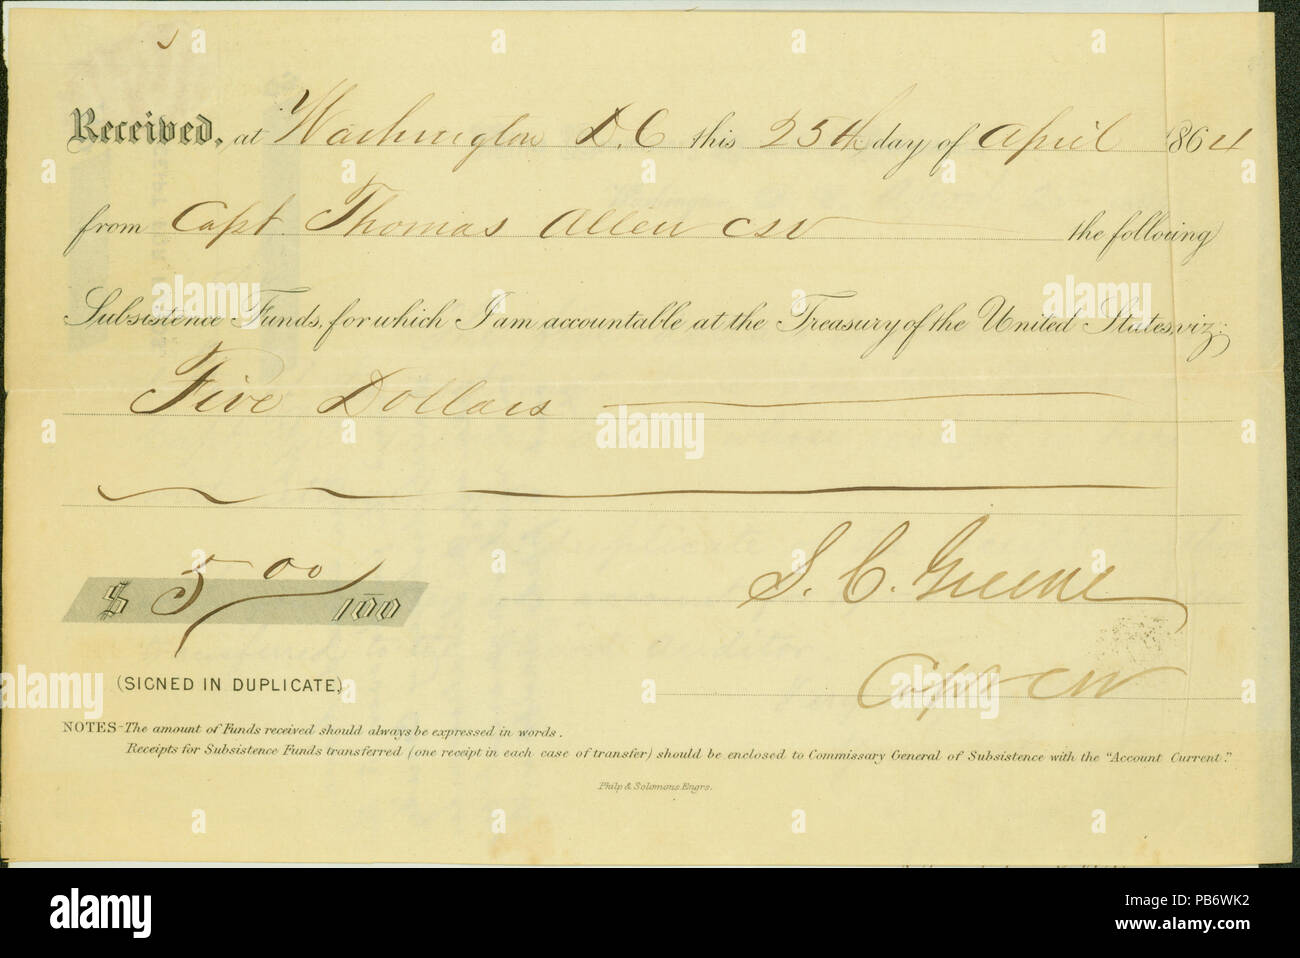 Received, at Washington D.C this 25th day of April 1864
from Capt. Thomas Allen CSV the following
Subsistence Funds, for which I am accountable at the Treasury of the United States, viz:
Five Dollars
$ 5 00/100
S. C. Greene
Capt CSV
(SIGNED IN DUPLICATE)
NOTES-The amount of Funds received should always be expressed in words.
Receipts for Subsistence Funds transferred (one receipt in each case of transfer) should be enclosed to Commissary General of Subsistence with the "Account Current."
Philp & Solomons. Engrs.
alamy
PB6WK2
www.alamy.com